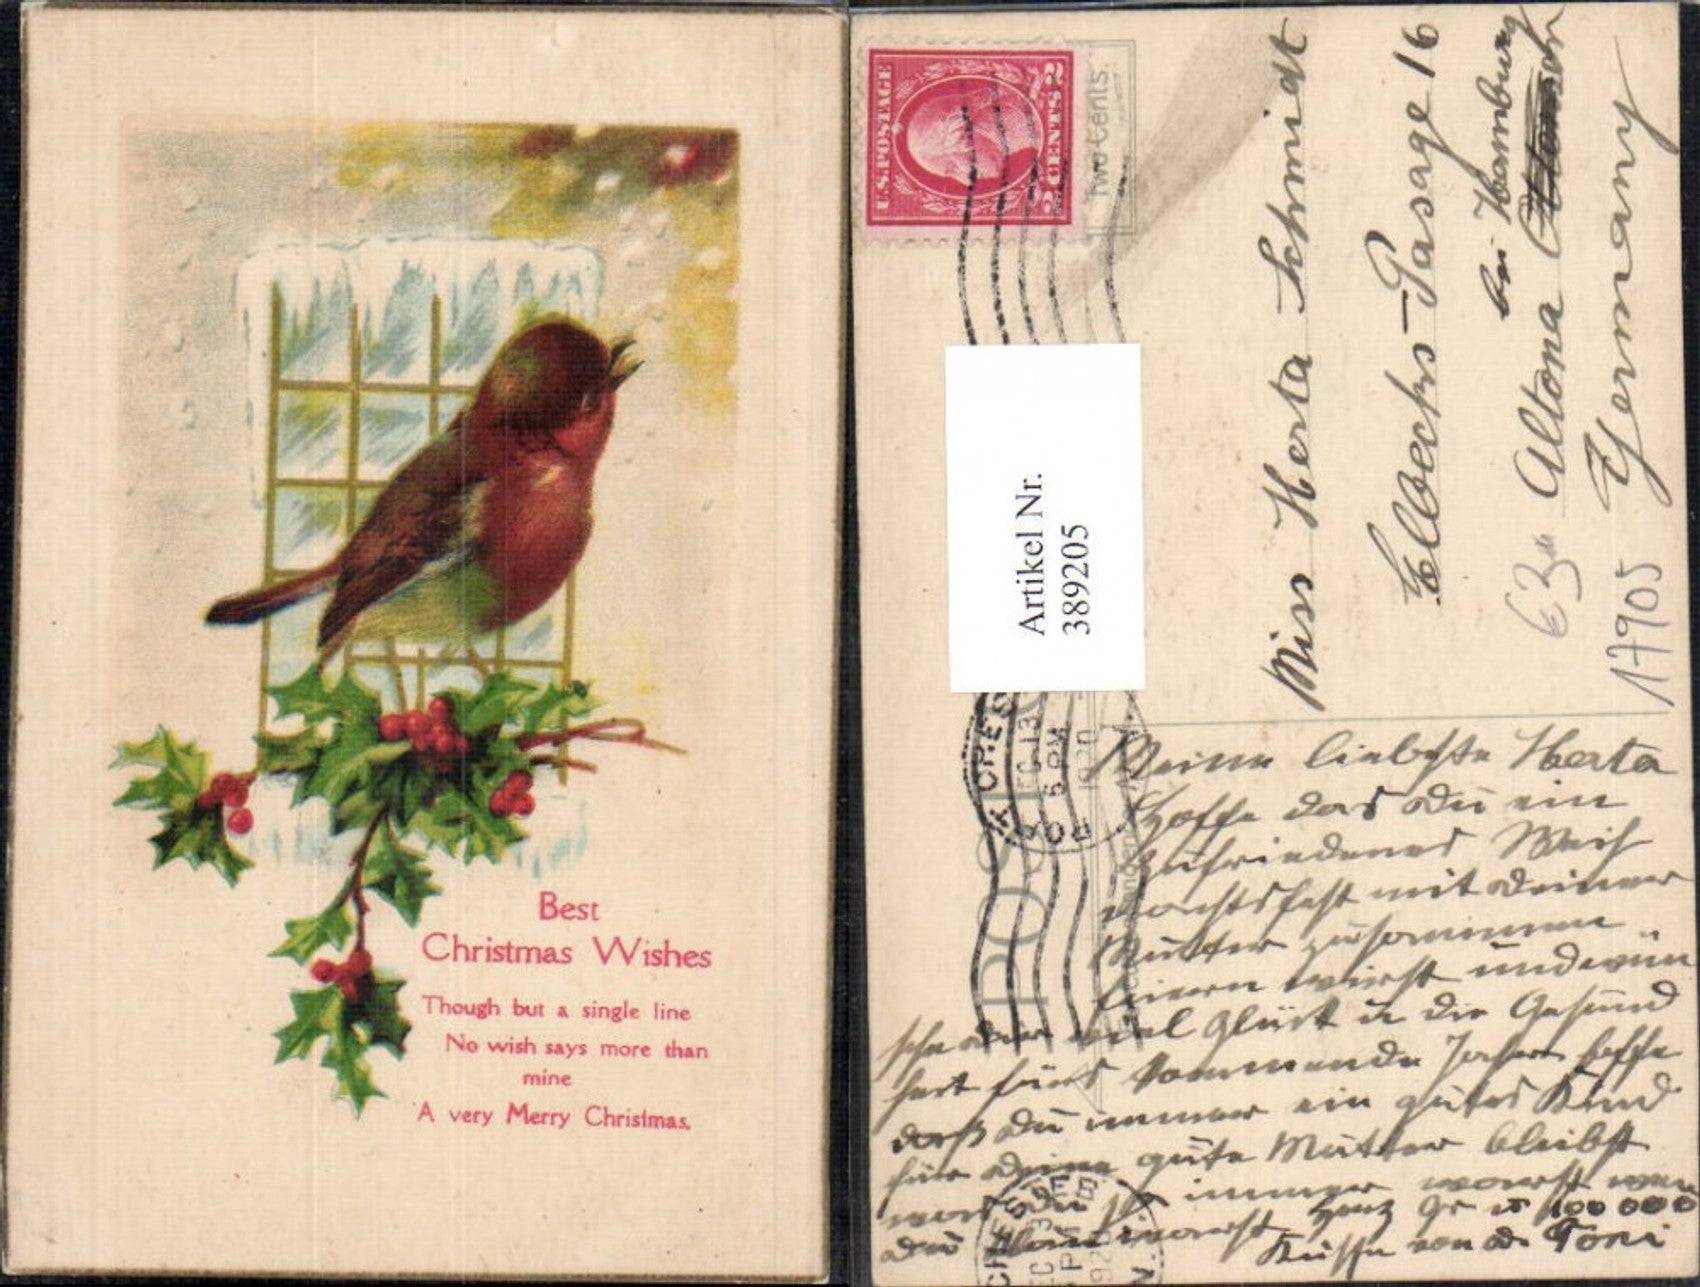 Best
Christmas Wishes
Though but a single line
No wish says more than
mine
A very Merry Christmas.
U.S. POSTAGE
2 CENTS 2
Two Cents.
Artikel Nr.
389205
POS
DORCHES
DEC 13
5 PM
1920
Miss Herta Schmidt
Elbechs-Pasage 16
bei Hamburg
Altona
Germany
€ 3
17905
Meine liebste Herta
Hoffe das du ein
zufriedenes Weih
nachtsfest mit deiner
Mutter zusammen
feiern wirst und wün
sche dir viel Glück u die Gesund
heit fürs kommende Jahr hoffe
daß du immer ein gutes Kind
für deine gute Mutter bleibst
was du ja immer warst
du warst 100 000
Küsse von d. Toni